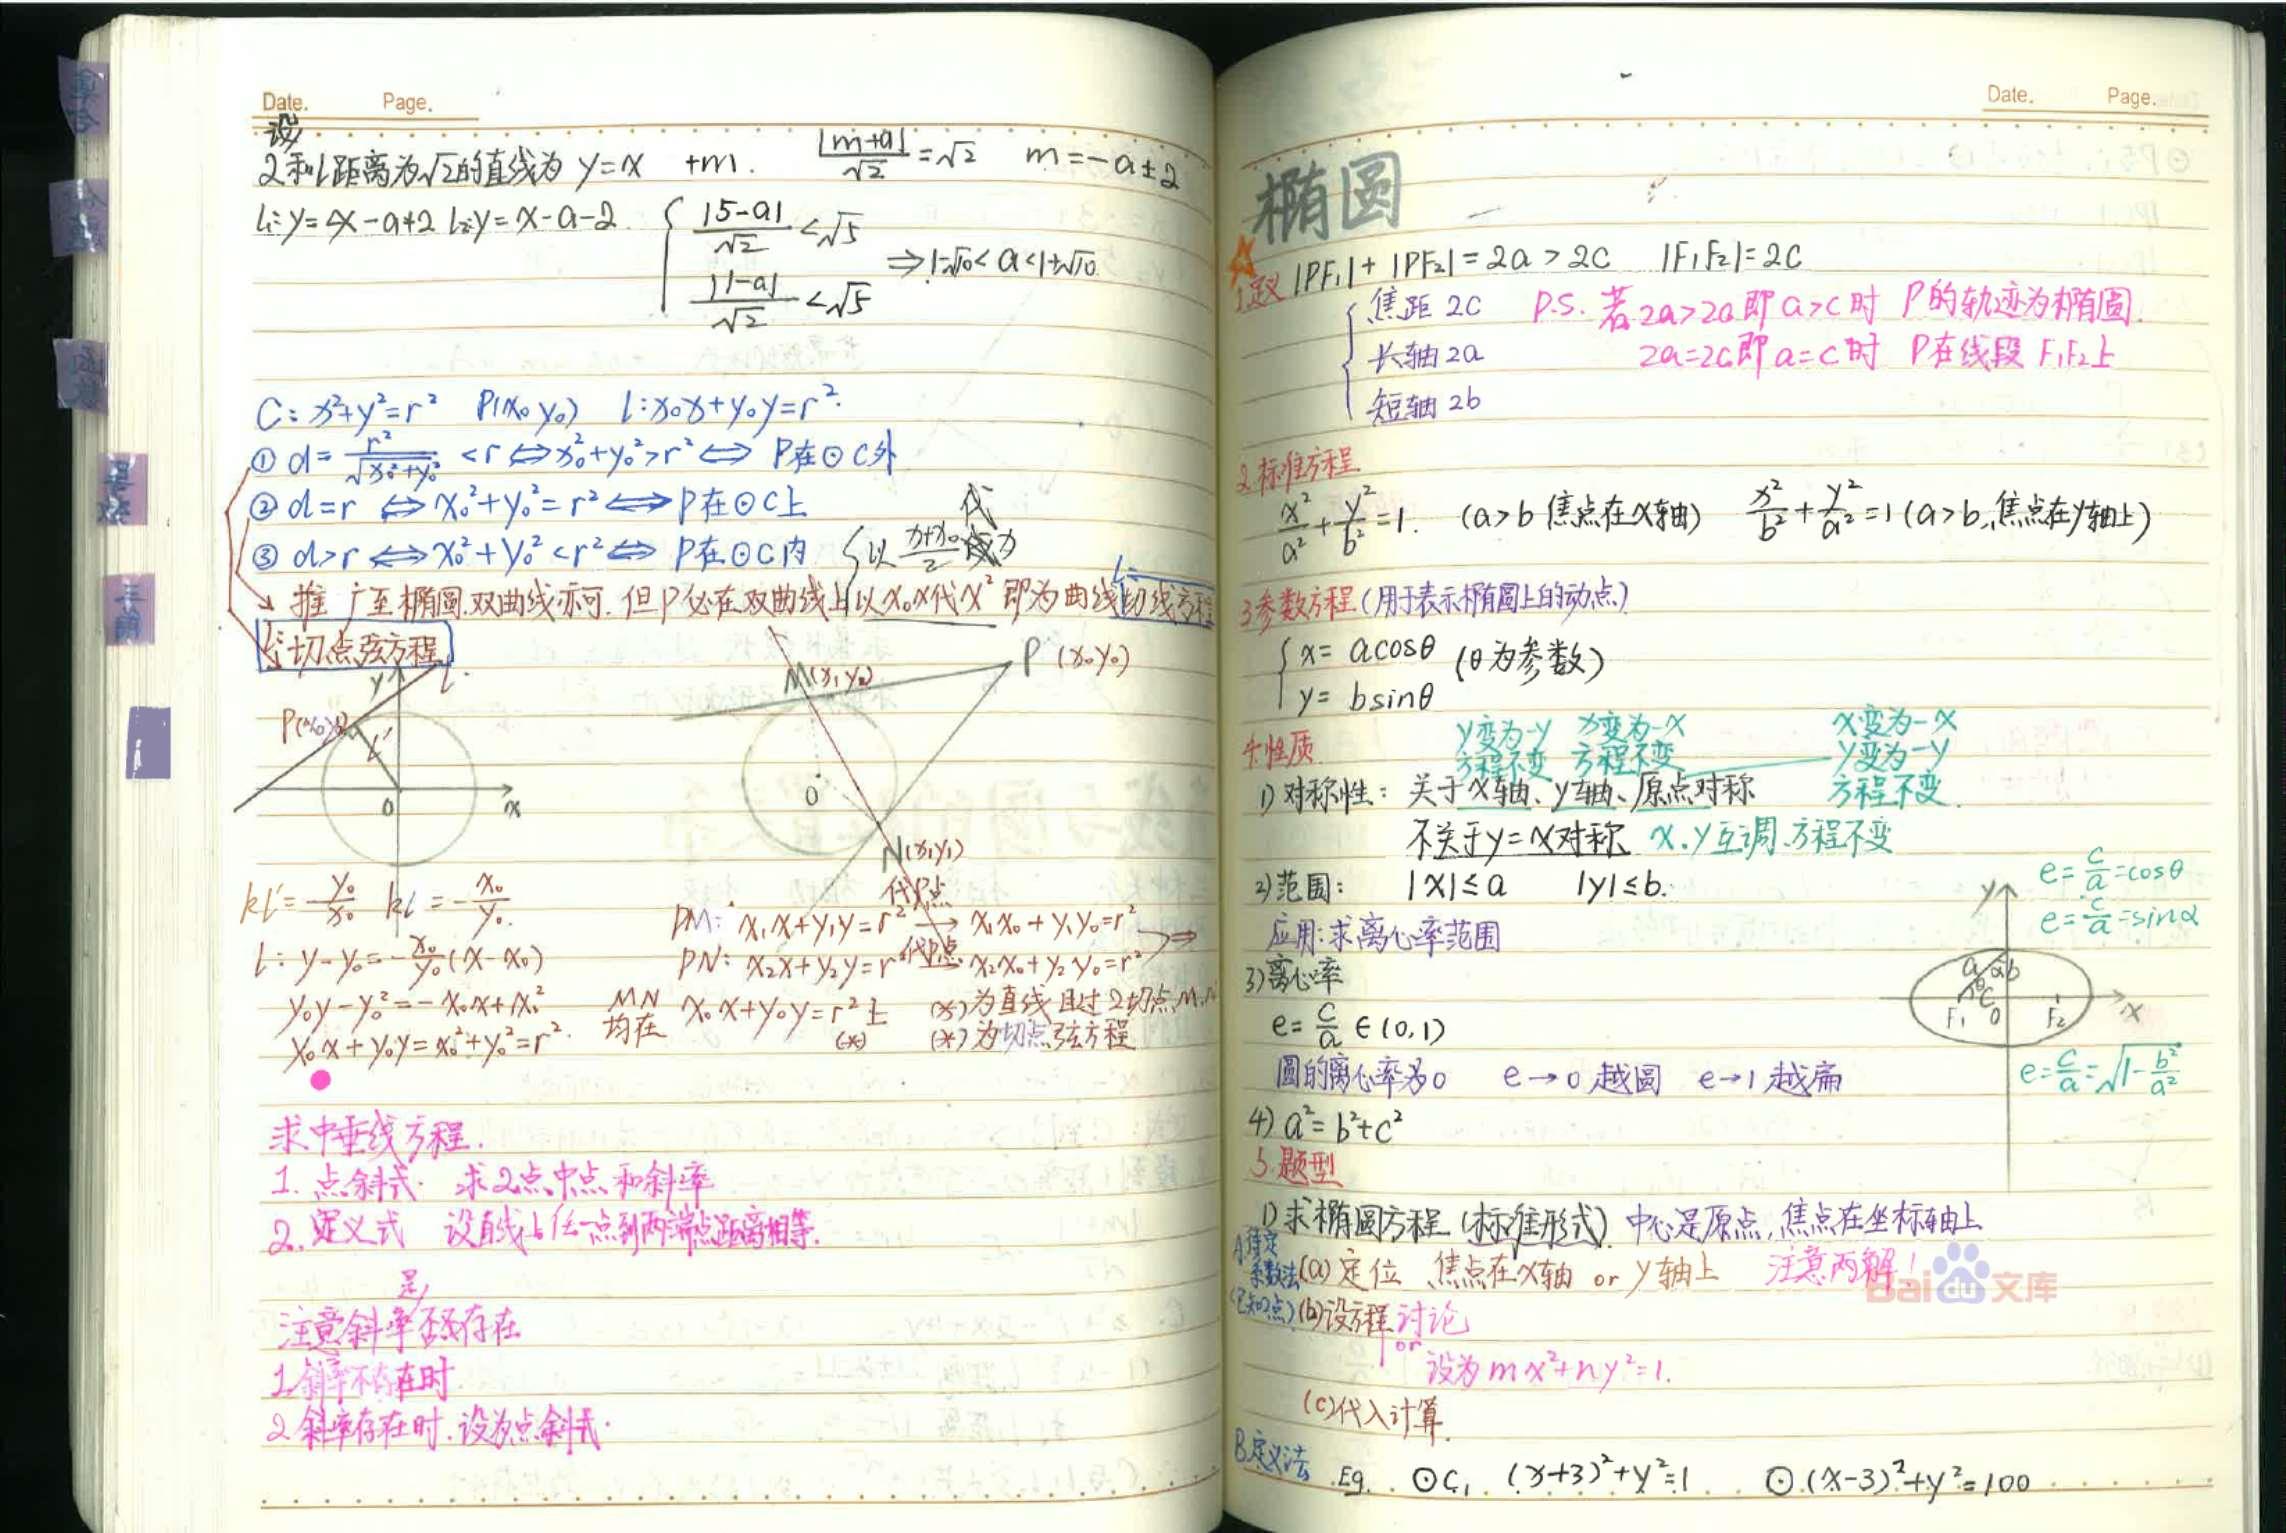 Date. Page.
设
2和l距离为√2的直线为 y=x +m. |m+a|/√2=√2 m=-a±2
l₁:y=x-a+2 l₂:y=x-a-2 { |5-a|/√2<√5
|1-a|/√2<√5
⇒1-√10<a<1+√10
C: x²+y²=r² P(x₀ y₀) l:x₀x+y₀y=r².
① d=r²/√(x₀²+y₀²) <r⇔x₀²+y₀²>r²⇔ P在⊙C外
② d=r ⇔x₀²+y₀²=r²⇔P在⊙C上
③ d>r⇔x₀²+y₀²<r²⇔ P在⊙C内
{以 (x+x₀)/2 代 x
以x₀x代x² 即为曲线切线方程
推广至椭圆.双曲线亦可.但P必在双曲线上
l:切点弦方程
y l
P(x₀y₀) l'
O x
M(x₁y₂) P (x₀y₀)
O
N(x₁y₁)
kl'=y₀/x₀ kl=-x₀/y₀.
l: y-y₀=-x₀/y₀(x-x₀)
y₀y-y₀²=-x₀x+x₀²
x₀x+y₀y=x₀²+y₀²=r².
PM: x₁x+y₁y=r² 代P点→ x₁x₀+y₁y₀=r²
PN: x₂x+y₂y=r² 代P点→ x₂x₀+y₂y₀=r² ⇒
MN均在 x₀x+y₀y=r²上 (*)
(*)为直线且过2切点M.N
(*)为切点弦方程
求中垂线方程.
1. 点斜式. 求2点中点和斜率
2. 定义式 设直线上任一点到两端点距离相等.
注意斜率是否存在
1.斜率不存在时
2.斜率存在时.设为点斜式.
Date. Page.
椭圆
1.定义 |PF₁|+|PF₂|=2a>2c |F₁F₂|=2c
{焦距 2c
长轴2a
短轴2b
P.S. 若2a>2a即a>c时 P的轨迹为椭圆.
2a=2c即a=c时 P在线段F₁F₂上
2.标准方程
x²/a²+y²/b²=1. (a>b 焦点在x轴) x²/b²+y²/a²=1(a>b,焦点在y轴上)
3.参数方程(用于表示椭圆上的动点)
{x=acosθ
y=bsinθ
(θ为参数)
4.性质
y变为-y 方程不变
x变为-x 方程不变
x变为-x y变为-y 方程不变
1)对称性: 关于x轴、y轴、原点对称
不关于y=x对称 x.y互调.方程不变
2)范围: |x|≤a |y|≤b.
应用:求离心率范围
3)离心率
e=c/a∈(0,1)
圆的离心率为0 e→0 越圆 e→1 越扁
e=c/a=cosθ
e=c/a=sinα
y
a α b
θ c
F₁ O F₂ x
e=c/a=√(1-b²/a²)
4) a²=b²+c²
5.题型
1)求椭圆方程(标准形式) 中心是原点,焦点在坐标轴上
A.待定系数法(已知2点)
(a)定位 焦点在x轴 or y轴上 注意两解!
(b)设方程 讨论
or
设为mx²+ny²=1.
(c)代入计算.
B.定义法
Eg. ⊙C₁ (x+3)²+y²=1 ⊙(x-3)²+y²=100
Baidu文库